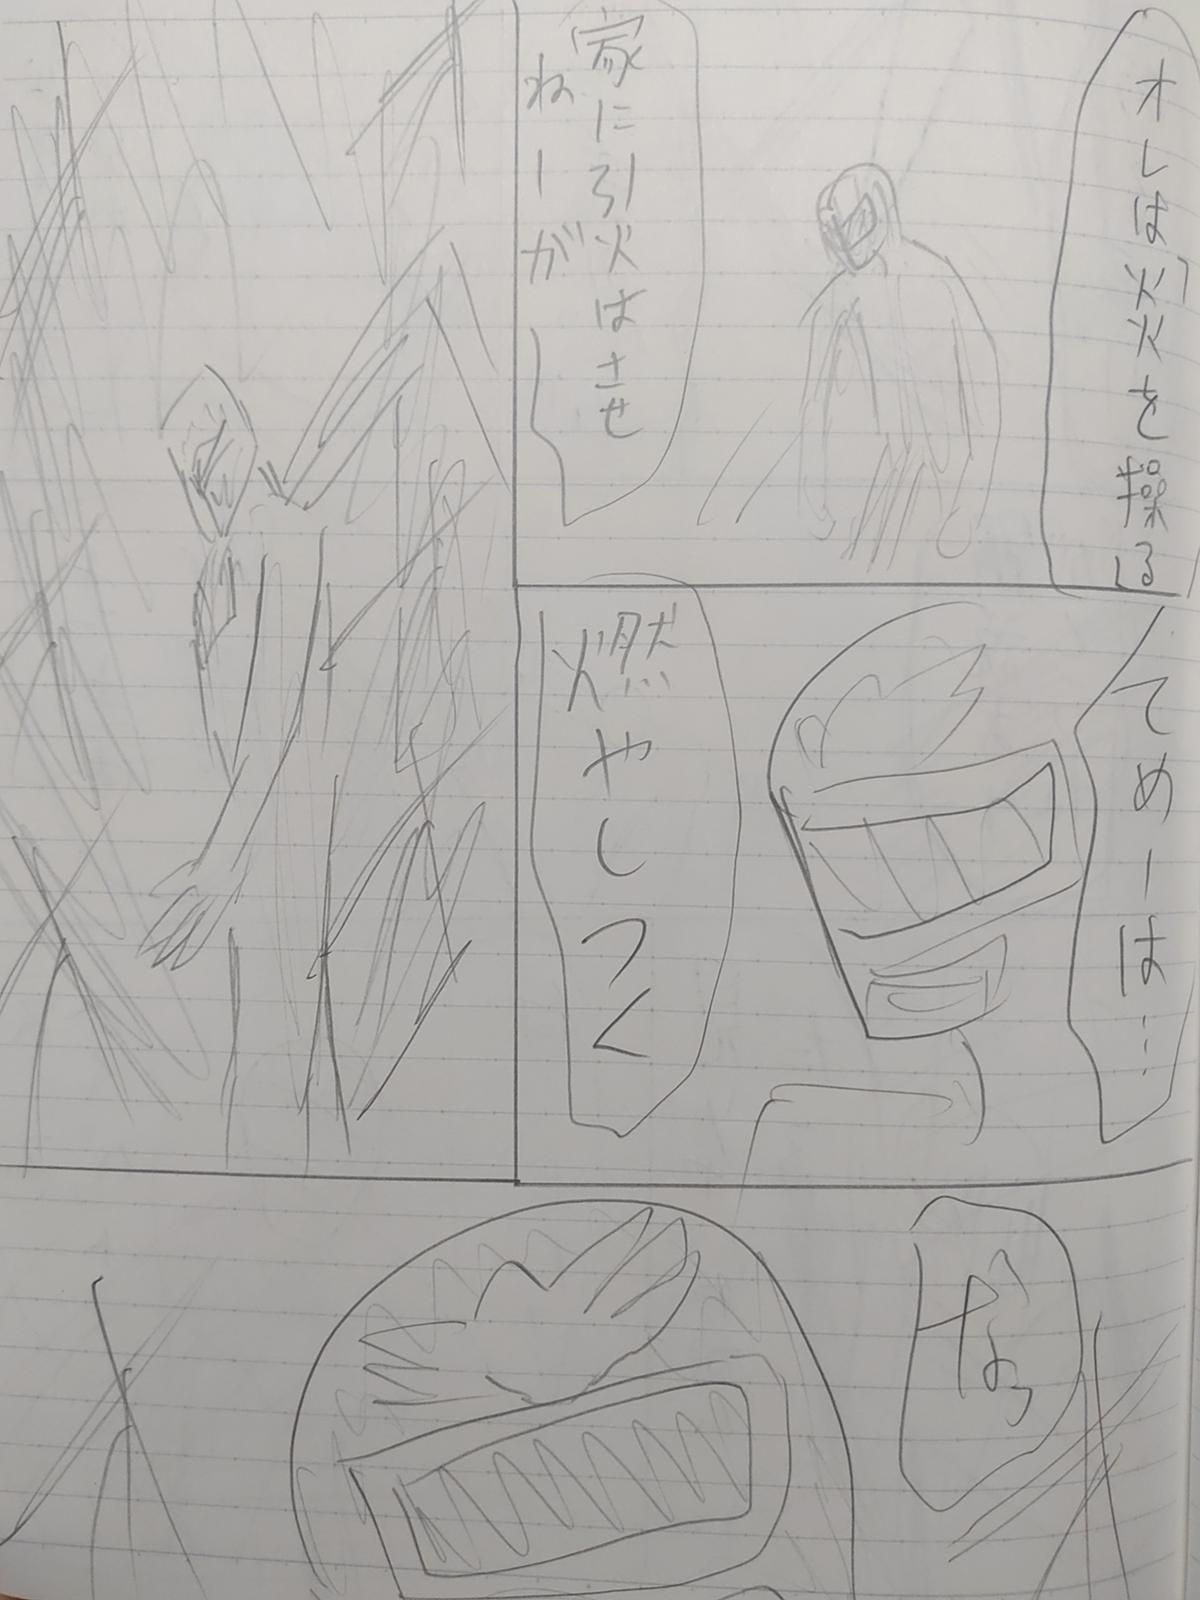 オレは「炎」を操る
家に引火はさせ
ねーが
てめーは…
燃やしつく
なっ